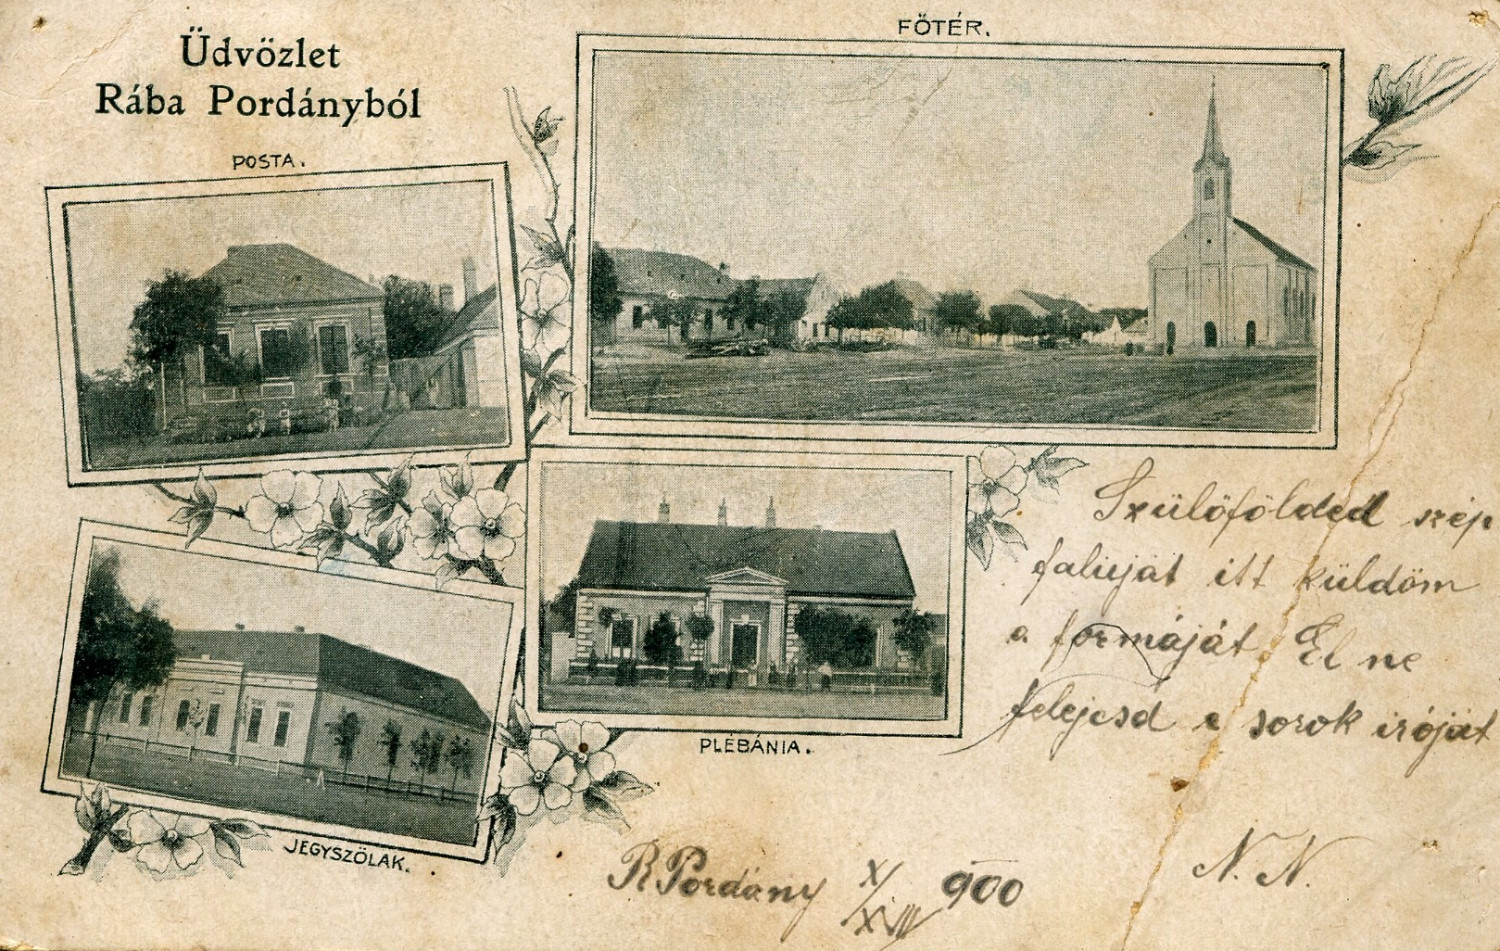 Üdvözlet
Rába Pordányból
POSTA.
FŐTÉR.
PLÉBÁNIA.
JEGYSZŐLAK.
Szülőfölded szép
faluját itt küldöm
a formáját. El ne
felejcsd e sorok iróját
N. N.
R Pordány X/XVIII 900